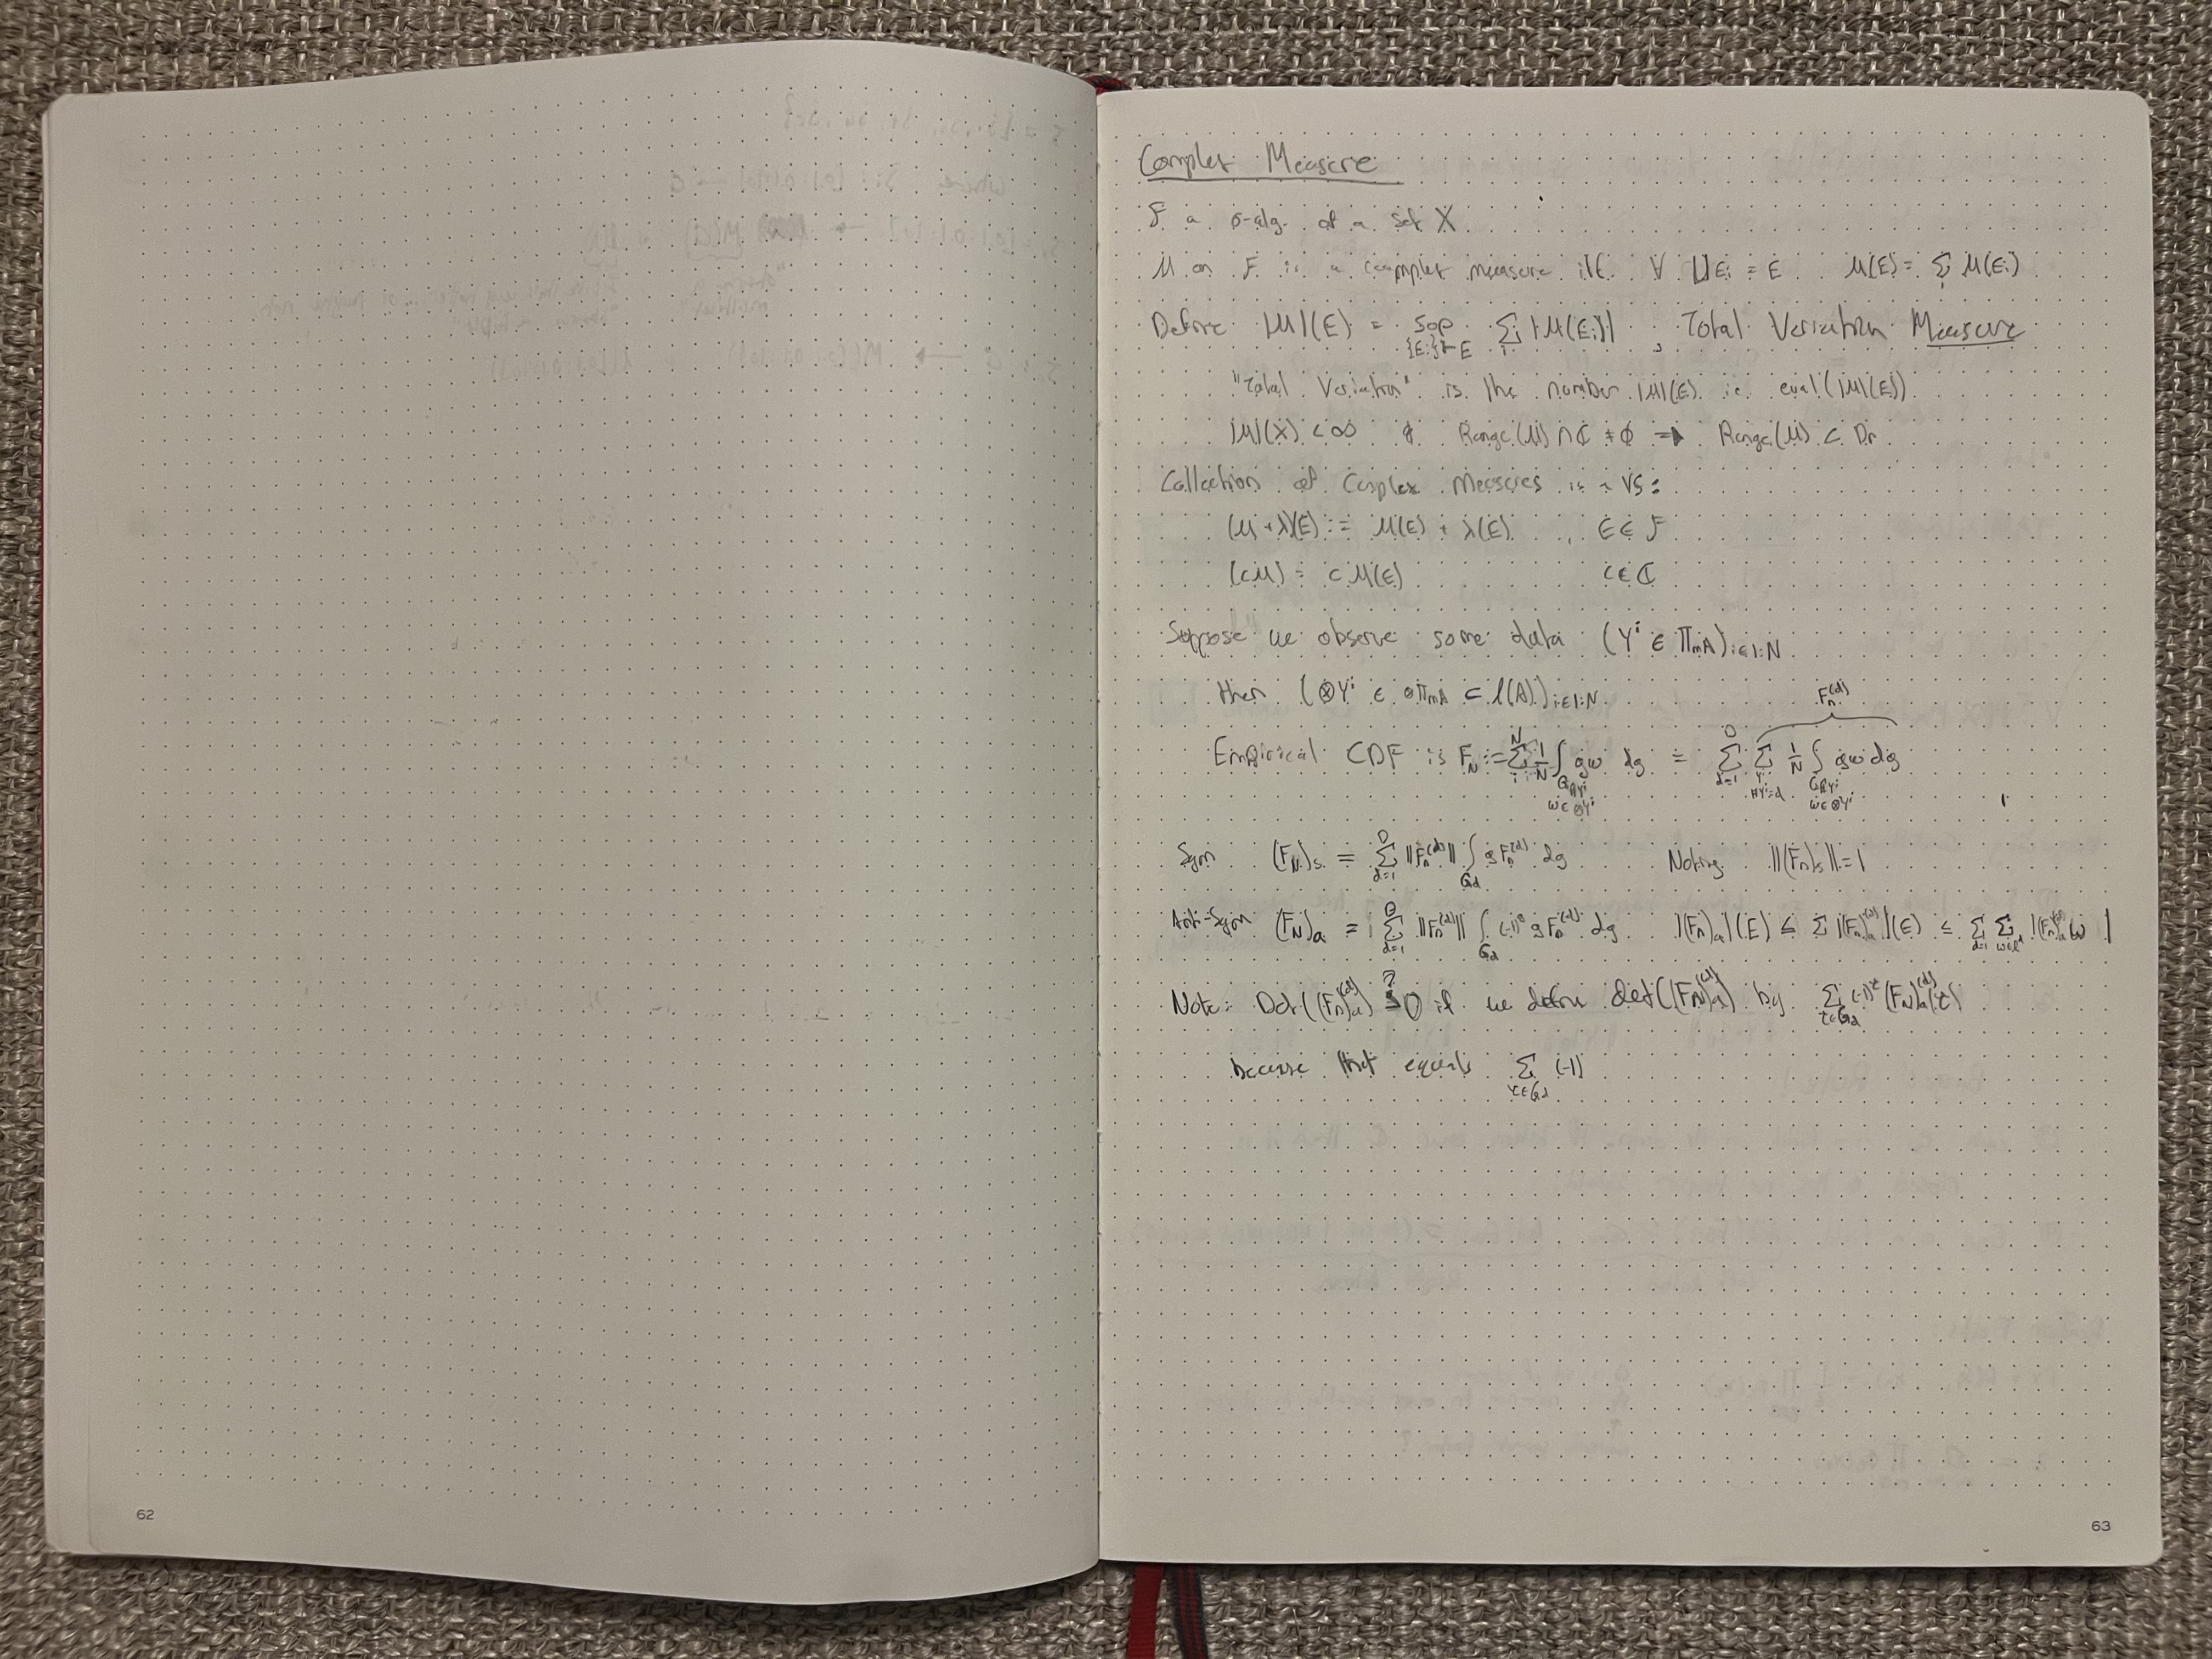 62
Complex Measure
F a σ-alg. of a set X
μ on F is a complex measure iff. ∀ ⊔Ei = E   μ(E) = Σi μ(Ei)
Define |μ|(E) = sup{Ei}⊢E Σi |μ(Ei)| , Total Variation Measure
"Total Variation" is the number |μ|(E) ie. eval(|μ|(E))
|μ|(X) < ∞   Range(μ) ∩ ℂ ≠ ∅ ⇒ Range(μ) ⊂
Collection of Complex Measures is a VS:
(μ + λ)(E) := μ(E) + λ(E) , E ∈ F
(cμ) = cμ(E)   c ∈ ℂ
Suppose we observe some data (Yⁱ ∈ ΠmA) i∈1:N
then (⊗Yⁱ ∈ ⊗ΠmA ⊂ l(A)) i∈1:N
Fn^(d)
Empirical CDF is FN := Σ^N i=1 1/N ∫ gω dg = Σ^D d=1 Σ Yⁱ #Yⁱ=d 1/N ∫ gω dg
ω∈⊗Yⁱ   ω∈⊗Yⁱ
Sym   (FN)s = Σ^D d=1 ||Fn^(d)|| ∫Gd gFn^(d) dg   Noting ||(Fn)s|| = 1
Anti-Sym   (FN)a = Σ^D d=1 ||Fn^(d)|| ∫Gd (-1)^g gFn^(d) dg   |(Fn)a|(E) ≤ Σ |(Fn)a^(d)|(E) ≤ Σ d=1 Σ |(Fn)a^(d) ω|
Note: Det((Fn)a^(d)) ≥? 0 if we define det((FN)a^(d)) by Σ τ∈Gd (-1)^τ (FN)a^(d)(τ)
because that equals Σ τ∈Gd (-1)
63